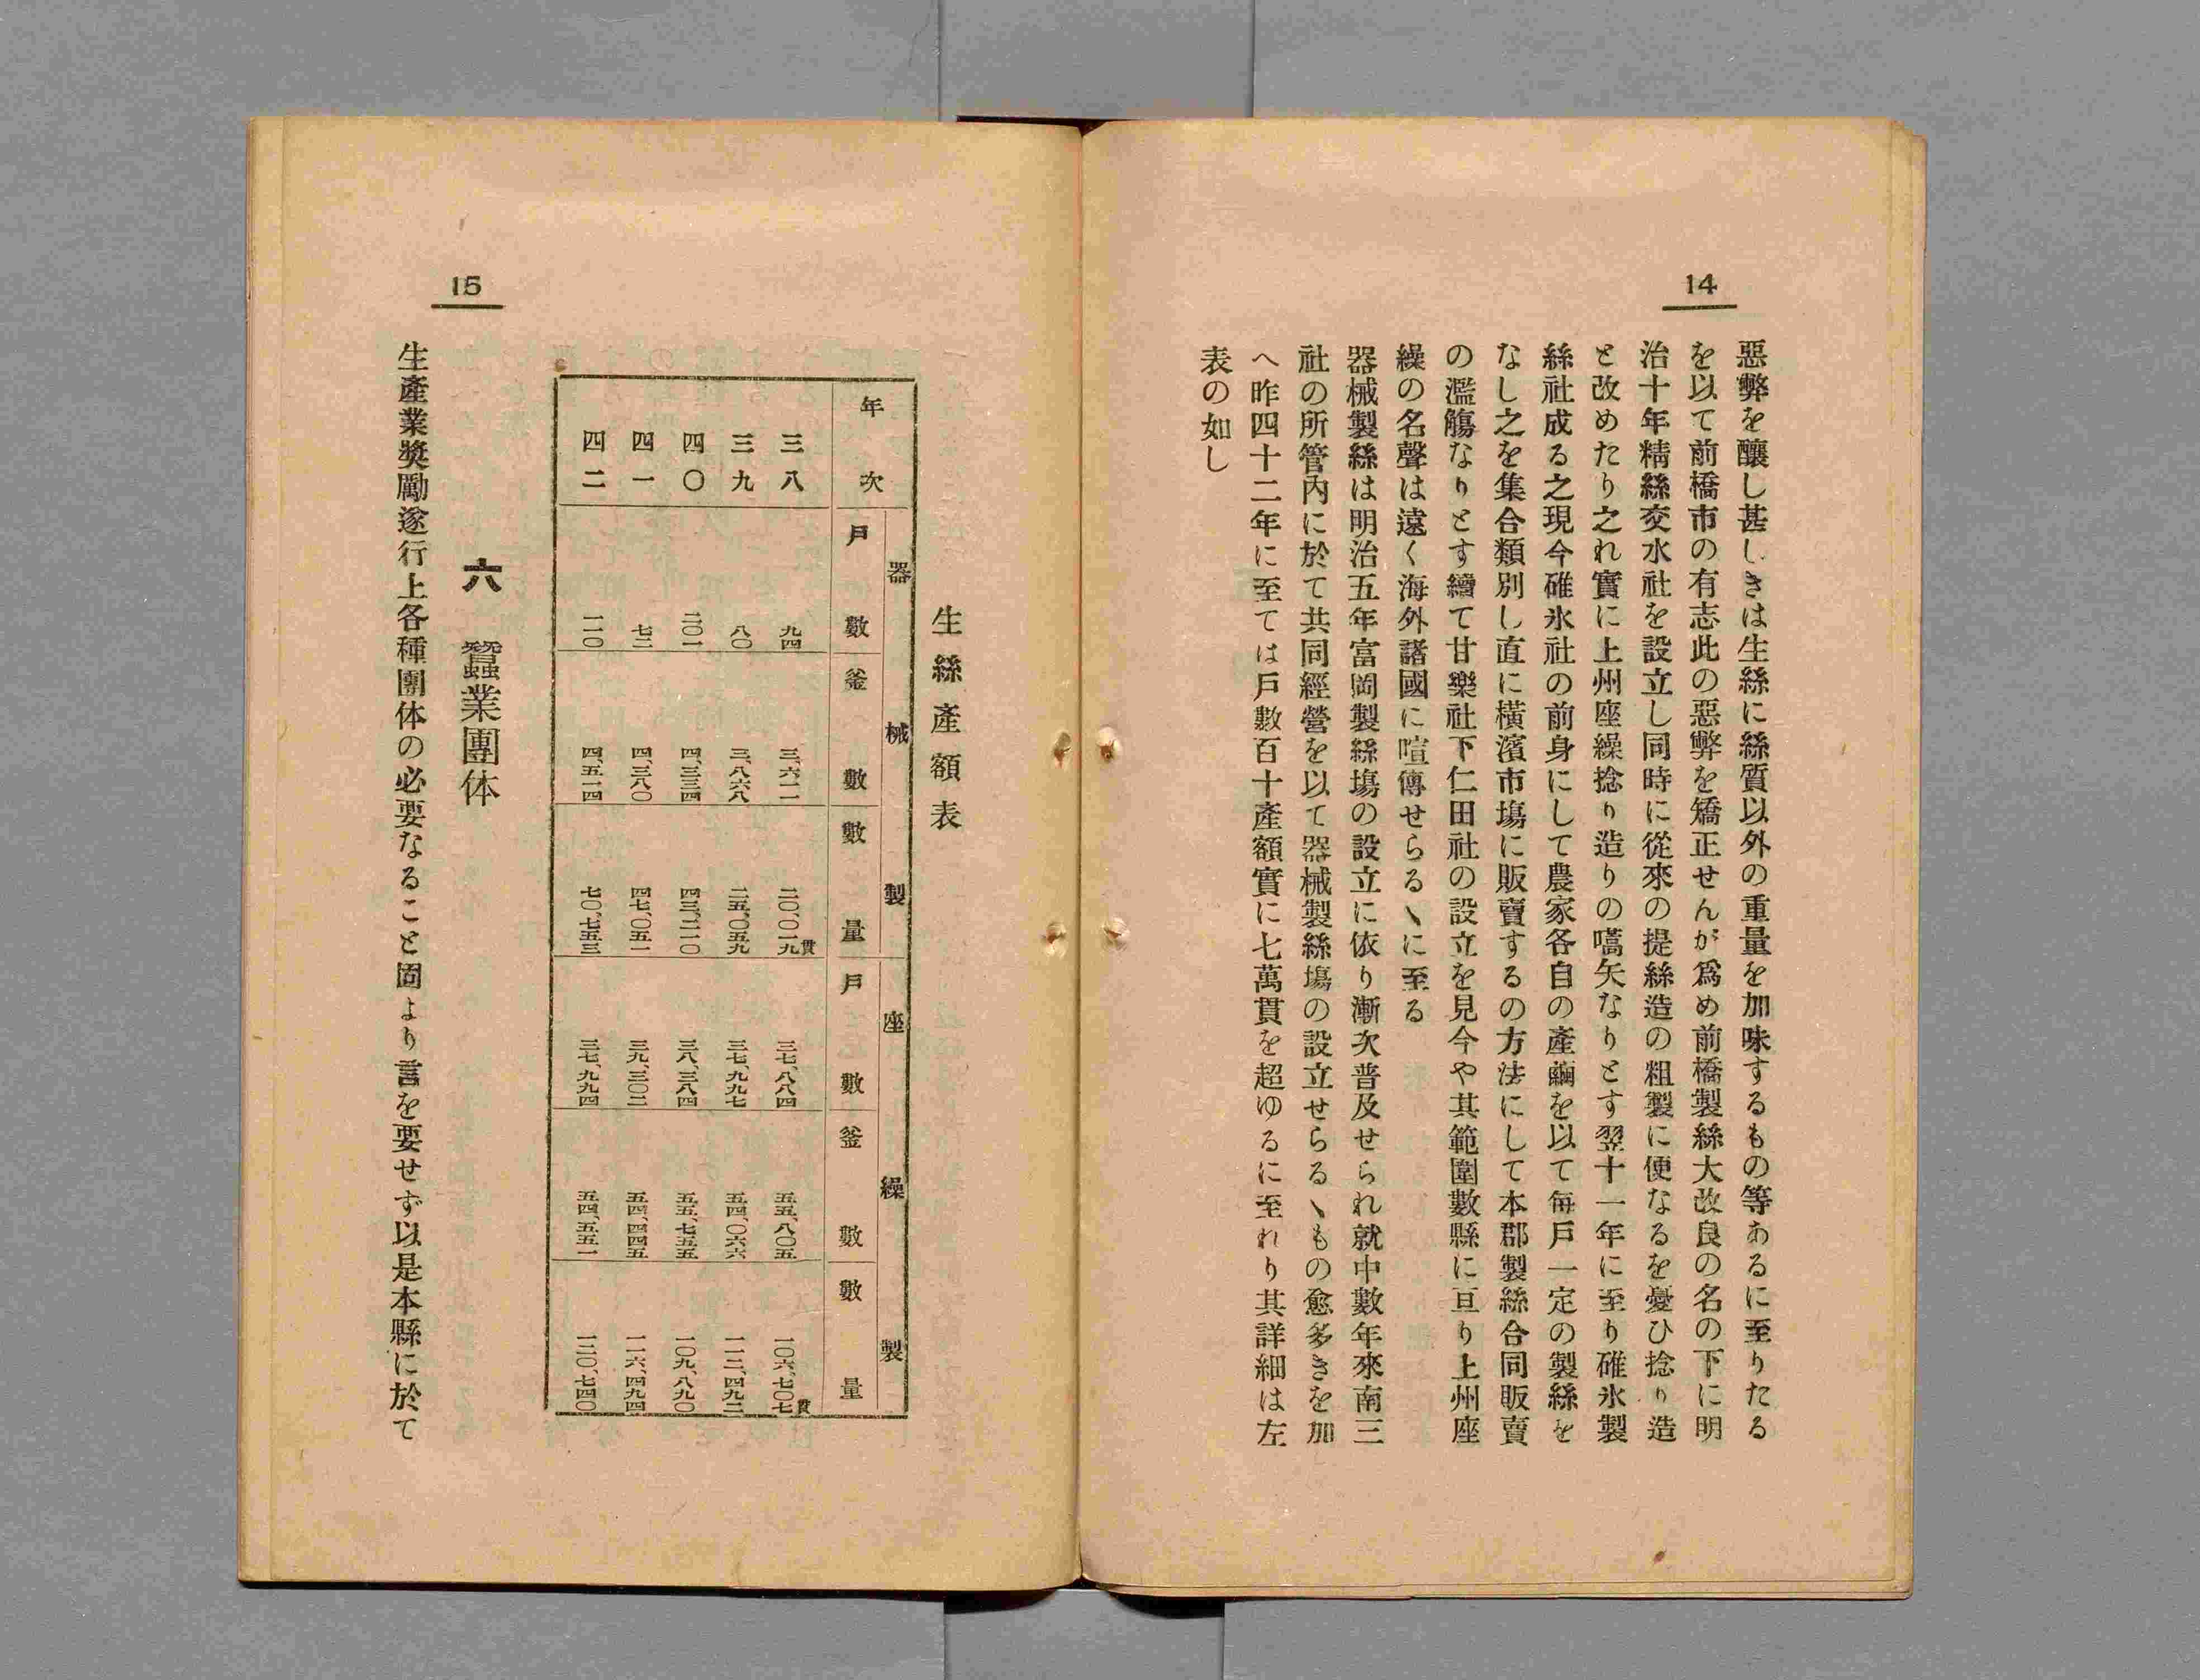 14
惡弊を釀し甚しきは生絲に絲質以外の重量を加味するもの等あるに至りたる
を以て前橋市の有志此の惡弊を矯正せんが爲め前橋製絲大改良の名の下に明
治十年精絲交水社を設立し同時に從來の提絲造の粗製に便なるを憂ひ捻り造
と改めたり之れ實に上州座繰捻り造りの嚆矢なりとす翌十一年に至り碓氷製
絲社成る之現今碓氷社の前身にして農家各自の產繭を以て每戶一定の製絲を
なし之を集合類別し直に橫濱市塲に販賣するの方法にして本郡製絲合同販賣
の濫觴なりとす續て甘樂社下仁田社の設立を見今や其範圍數縣に亘り上州座
繰の名聲は遠く海外諸國に喧傳せらるヽに至る
器械製絲は明治五年富岡製絲塲の設立に依り漸次普及せられ就中數年來南三
社の所管內に於て共同經營を以て器械製絲塲の設立せらるヽもの愈多きを加
へ昨四十二年に至ては戶數百十產額實に七萬貫を超ゆるに至れり其詳細は左
表の如し
15
生絲產額表
器械製 座繰製
年次 戶數 釜數 數量 戶數 釜數 數量
三八 九四 三、六一一 二〇、〇一九貫 三七、八八四 五五、八〇五 一〇六、七〇七貫
三九 八〇 三、八六八 二五、〇五九 三七、九九七 五四、〇六六 一一二、四九二
四〇 一〇一 四、三三四 四三、二一〇 三八、三八四 五五、七五五 一〇九、八九〇
四一 七三 四、三八〇 四七、〇五一 三九、三〇二 五四、四四五 一一六、四九四
四二 一一〇 四、五一四 七〇、七五三 三七、九九四 五四、五五一 一二〇、七四〇
六 蠶業團体
生產業奬勵遂行上各種團体の必要なること固より言を要せず以是本縣に於て